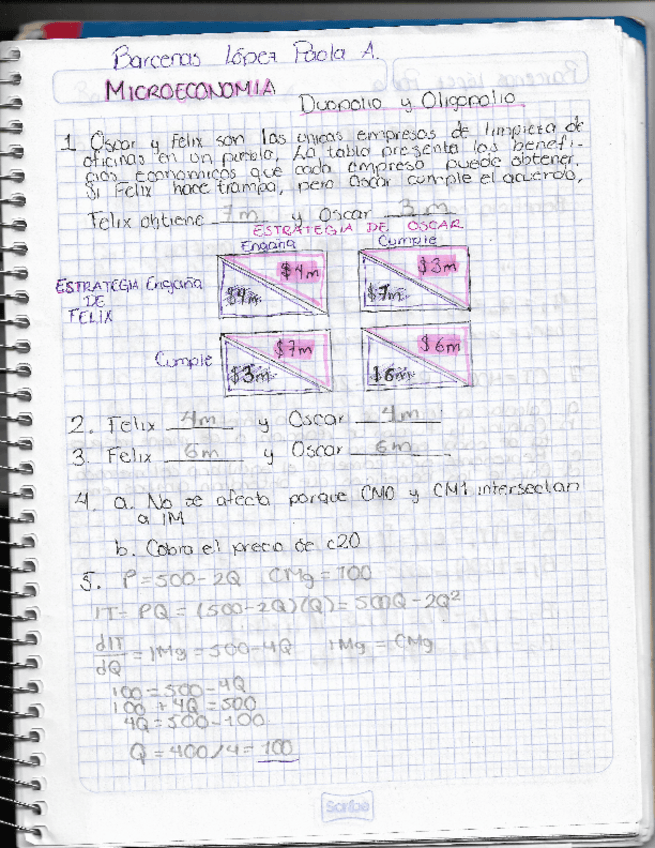 Barcenas López Paola A.
MICROECONOMIA
Duopolio y Oligopolio
1 Oscar y Felix son las unicas empresas de limpieza de
oficinas en un pueblo, La tabla presenta los benefi-
cios economicos que cada empresa puede obtener.
Si Felix hace trampa, pero Oscar cumple el acuerdo,
Felix obtiene 7m y Oscar 3m
ESTRATEGIA DE OSCAR
Engaña Cumple
$4m $3m
ESTRATEGIA Engaña
DE
FELIX
$4m $7m
$7m $6m
Cumple
$3m $6m
2. Felix 4m y Oscar 4m
3. Felix 6m y Oscar 6m
4. a. No se afecta porque CM0 y CM1 intersectan
a IM
b. Cobra el precio de c20
5. P=500-2Q CMg=100
IT= PQ = (500-2Q)(Q)= 500Q-2Q²
dIT/dQ = IMg = 500-4Q IMg = CMg
100=500-4Q
100 + 4Q = 500
4Q = 500-100
Q = 400/4 = 100
Scribe